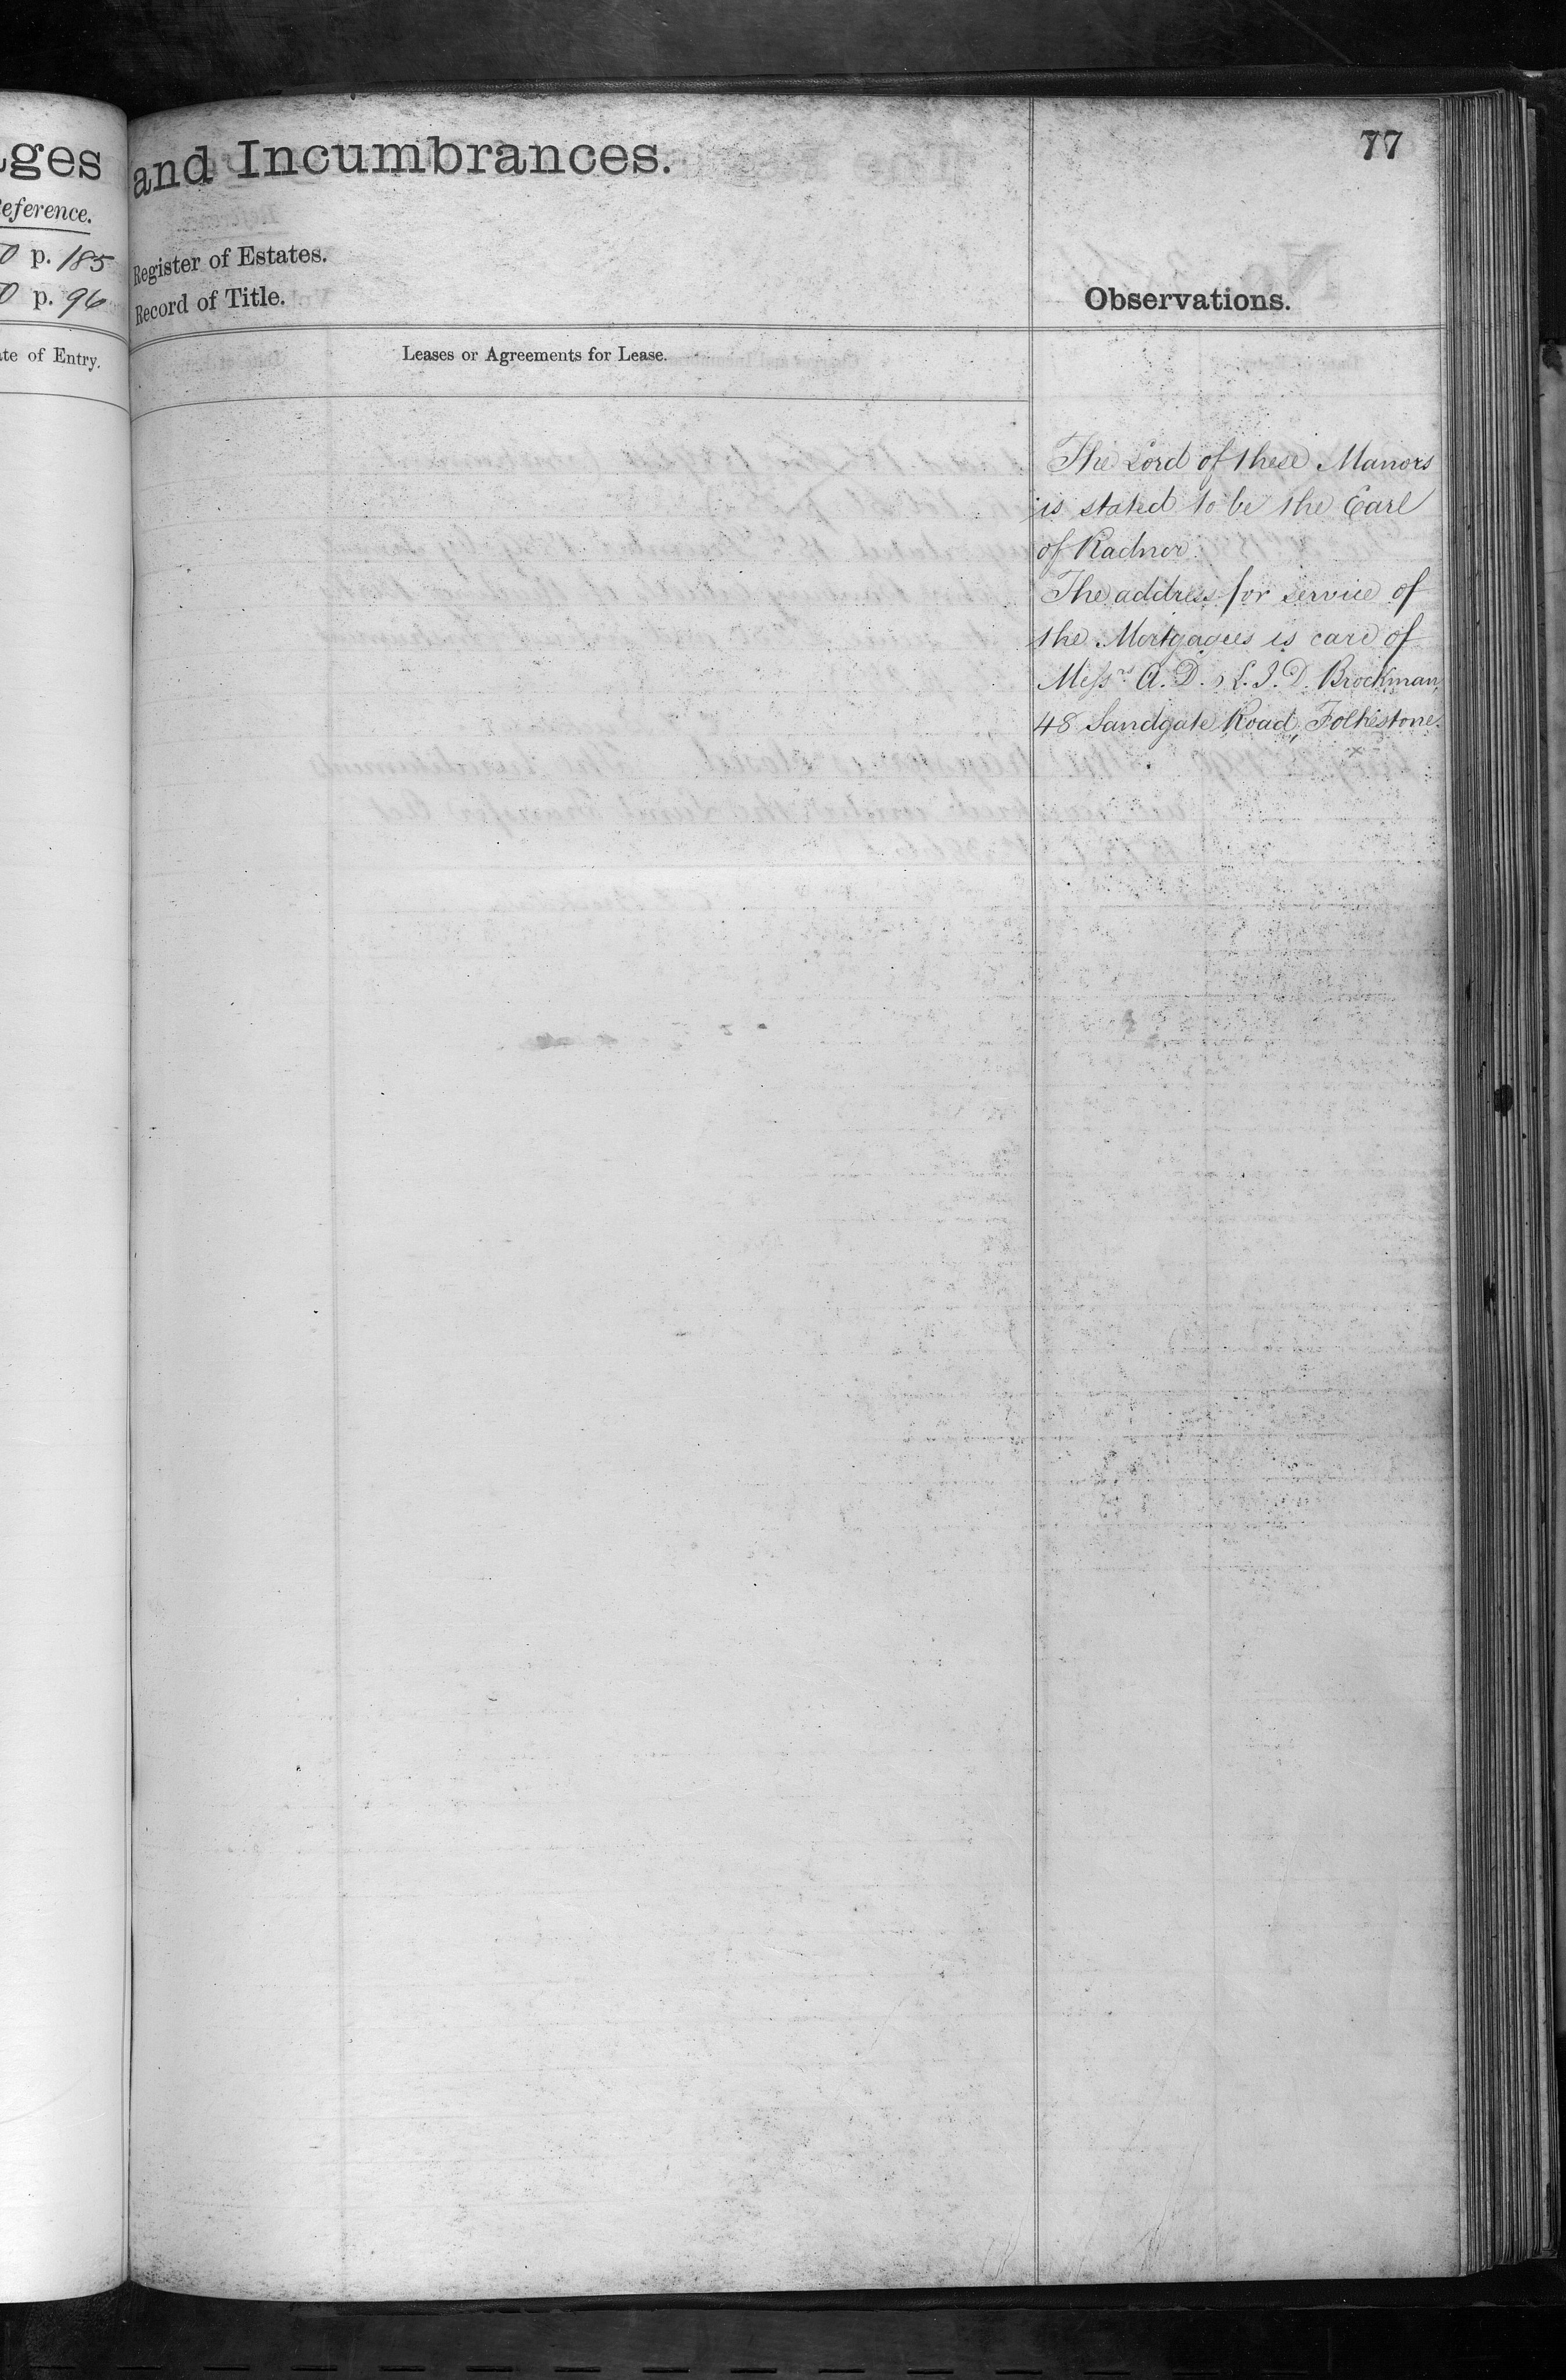 ages
Reference.
0 p. 185
0 p. 96
ate of Entry.
and Incumbrances.
77
Register of Estates.
Record of Title.
Observations.
Leases or Agreements for Lease.
The Lord of these Manors
is stated to be the Earl
of Radnor.
The address for service of
the Mortgagees is care of
Messrs A. D. & L. I. D. Brockman,
48 Sandgate Road, Folkestone.